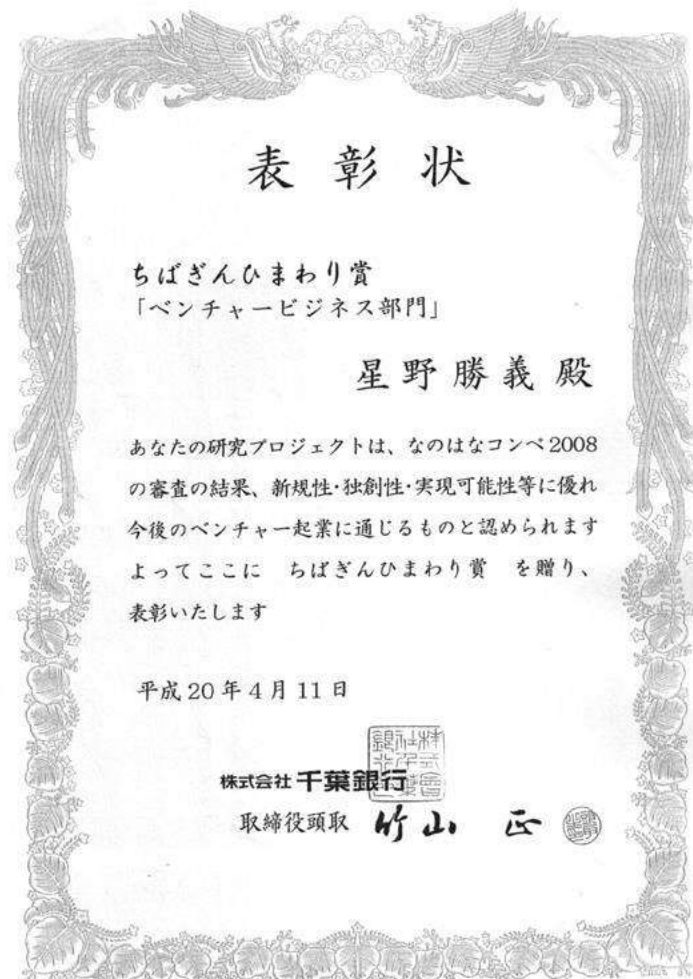 表彰状
ちばぎんひまわり賞
「ベンチャービジネス部門」
星野勝義 殿
あなたの研究プロジェクトは、なのはなコンペ2008
の審査の結果、新規性・独創性・実現可能性等に優れ
今後のベンチャー起業に通じるものと認められます
よってここに　ちばぎんひまわり賞　を贈り、
表彰いたします
平成20年4月11日
株式会社 千葉銀行
取締役頭取 竹山 正